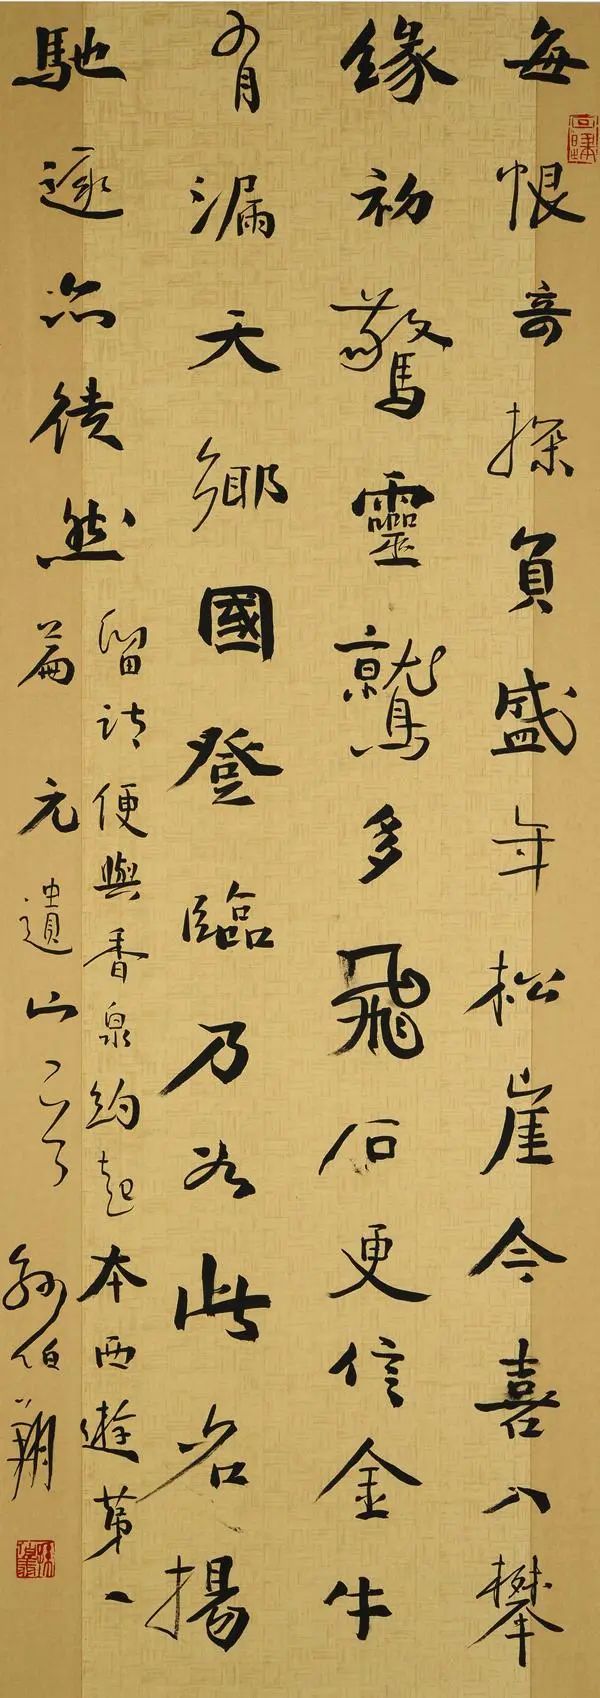 每恨奇探負盛年松崖今喜入攀
緣初驚靈鷲多飛石更信金牛
有漏天鄉國登臨乃如此名揚
馳逐亦徒然
留詩便與香泉約起本西遊第一
篇元遺山
孫伯翔